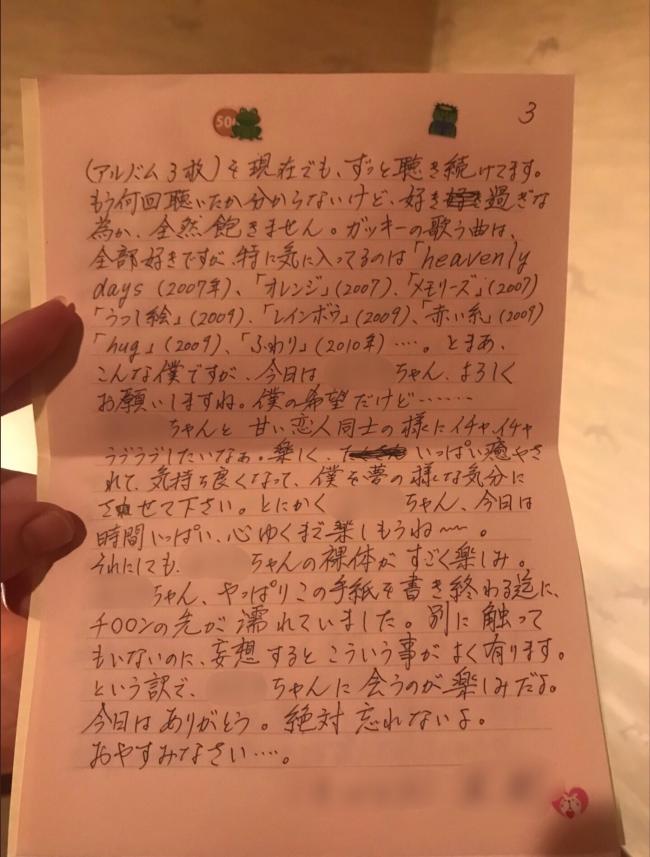 50
3
(アルバム3枚)を現在でも、ずっと聴き続けてます。
もう何回聴いたか分からないけど、好き過ぎな
為か、全然飽きません。ガッキーの歌う曲は、
全部好きですが、特に気に入ってるのは「heavenly
days(2007年)、「オレンジ」(2007)、「メモリーズ」(2007)
「うつし絵」(2009)、「レインボウ」(2009)、「赤い糸」(2009)
「hug」(2009)、「ふわり」(2010年)....。とまあ、
こんな僕ですが、今日は ちゃん、よろしく
お願いしますね。僕の希望だけど……
ちゃんと 甘い恋人同士の様にイチャイチャ
ラブラブしたいなぁ。楽しく、いっぱい癒やさ
れて、気持ち良くなって、僕を夢の様な気分に
させて下さい。とにかく ちゃん、今日は
時間いっぱい、心ゆくまで楽しもうね〜〜。
それにしても、 ちゃんの裸体がすごく楽しみ。
ちゃん、やっぱりこの手紙を書き終わる迄に、
チ〇〇ンの先が濡れていました。別に触って
もいないのに、妄想するとこういう事がよく有ります。
という訳で、 ちゃんに会うのが楽しみだよ。
今日はありがとう。絶対忘れないよ。
おやすみなさい....。